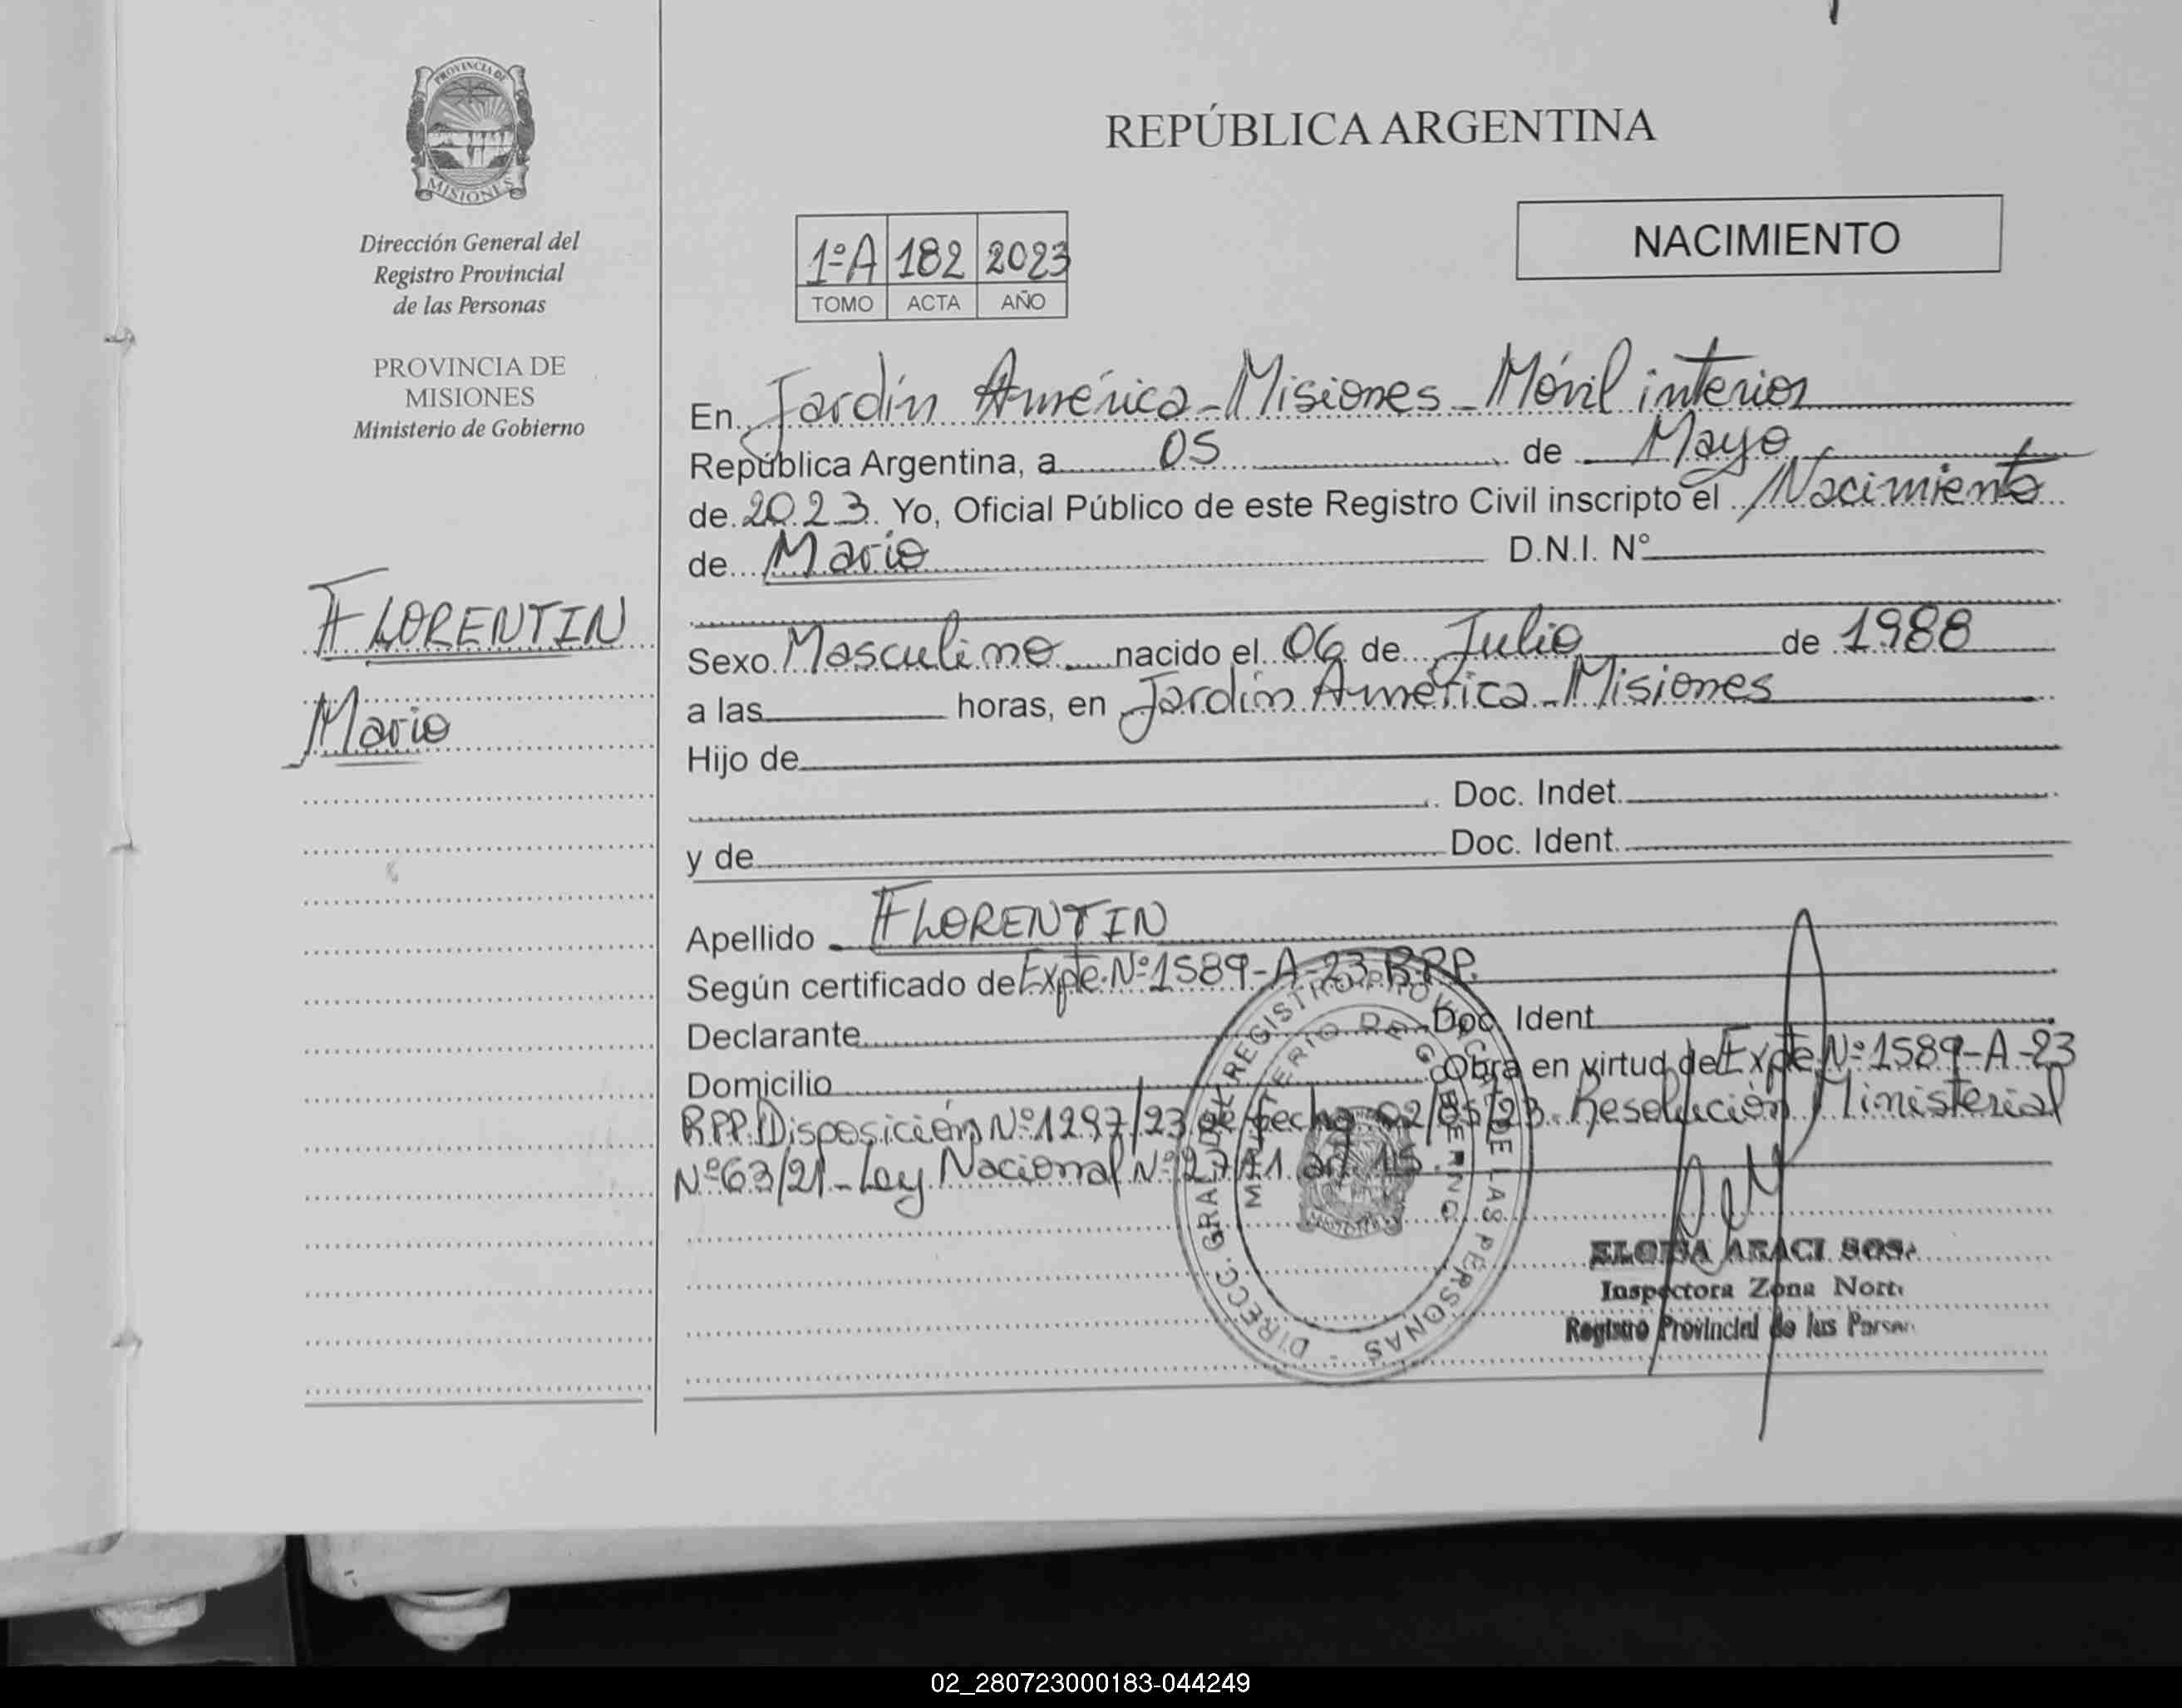 PROVINCIA DE
MISIONES
Dirección General del
Registro Provincial
de las Personas
PROVINCIA DE
MISIONES
Ministerio de Gobierno
FLORENTIN
Mario
REPÚBLICA ARGENTINA
NACIMIENTO
1ºA 182 2023
TOMO ACTA AÑO
En Jardín América - Misiones - Móvil interior
República Argentina, a 05 de Mayo
de 2023. Yo, Oficial Público de este Registro Civil inscripto el Nacimiento
de Mario D.N.I. Nº
Sexo Masculino nacido el 06 de Julio de 1988
a las horas, en Jardín América - Misiones
Hijo de
Doc. Indet.
y de Doc. Ident.
Apellido FLORENTIN
Según certificado de Expte. Nº 1589-A-23 R.P.P.
Declarante Doc. Ident
Domicilio Obra en virtud de Expte. Nº 1589-A-23
R.P.P. Disposición Nº 1297/23 de fecha 02/05/23. Resolución Ministerial
Nº 63/21 - Ley Nacional Nº art. 15.
DIRECC. GRAL. DEL REGISTRO PROVINCIAL DE LAS PERSONAS -
MINISTERIO DE GOBIERNO
ELOISA ARACI SOSA
Inspectora Zona Norte
Registro Provincial de las Person
02_280723000183-044249